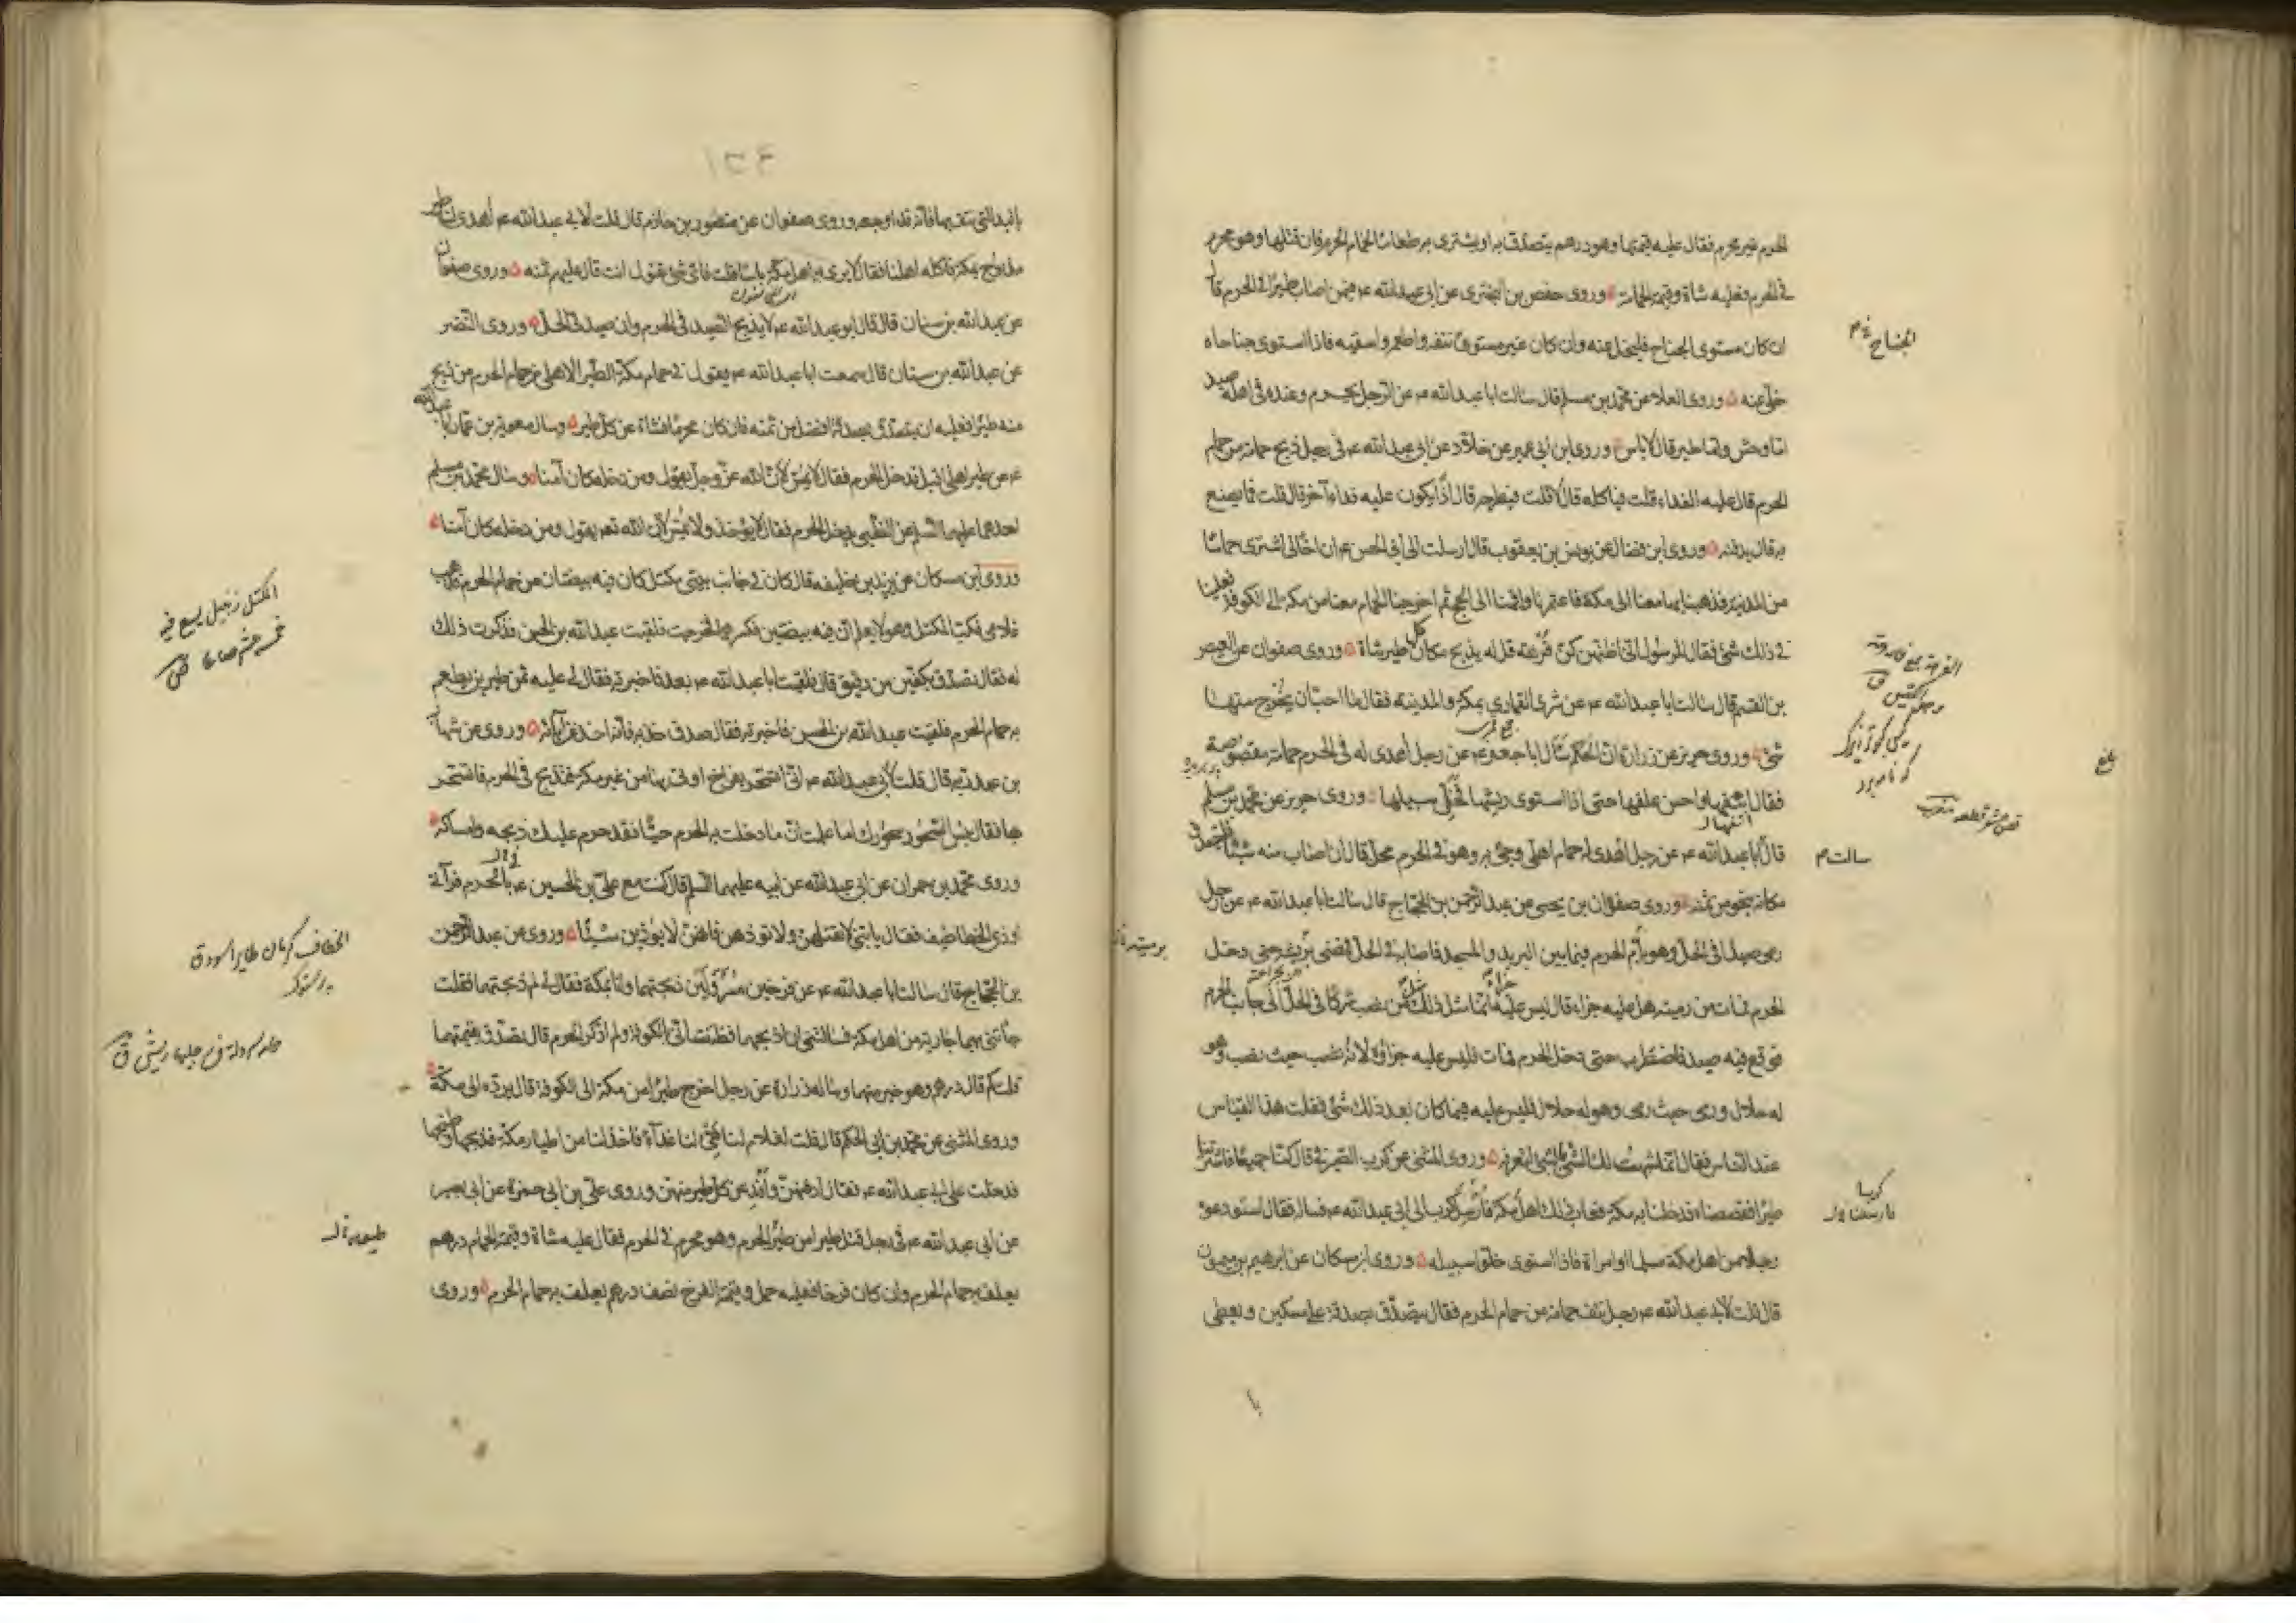 الحرم غير محرم فقال عليه قيمتها وهو درهم يتصدق به او يشترى به طعاما لحمام الحرم فان قتلها وهو محرم
فى الحرم فعليه شاة وقيمة الحمامة وروى حفص بن البخترى عن ابى عبدالله ع فيمن اصاب طيرا فى الحرم قال
ان كان مستوى الجناح فليخل عنه وان كان غير مستوى نتفه واطعمه واسقيته فاذا استوى جناحاه
خلى عنه وروى العلاء عن محمد بن مسلم قال سالت ابا عبدالله ع عن الرجل يحرم وعنده فى اهله صيد
اما وحش واما طير قال لا باس وروى ابن ابى عمير عن خلاد عن ابى عبدالله ع فى رجل ذبح حمامة من حمام
الحرم قال عليه الفداء قلت فياكله قال لا قلت فيطرحه قال اذا يكون عليه فداء آخر قال قلت فما يصنع
به قال يدفنه وروى ابن فضال عن يونس بن يعقوب قال ارسلت الى ابى الحسن ع ان اخا لى اشترى حماما
من المدينة فذهبنا بها معنا الى مكة فاعتمرنا واقمنا الى الحج ثم اخرجنا الحمام معنا من مكة الى الكوفة فعلينا
فى ذلك شئ فقال للرسول انى اظنهن كن فرهة قل له يذبح مكان كل طير شاة وروى صفوان عن العيص
بن القسم قال سالت ابا عبدالله ع عن شرى القمارى بمكة والمدينة فقال ما احب ان يخرج منهما
شئ وروى حريز عن زرارة ان الحكم سال ابا جعفر ع عن رجل اهدى له فى الحرم حمامة مقصوصة
فقال انتفها واحسن علفها حتى اذا استوى ريشها فخل سبيلها وروى حريز عن محمد بن مسلم
قال ابا عبدالله ع عن رجل اهدى له حمام اهلى وجئ به وهو فى الحرم محل قال ان اصاب منه شيئا فليتصدق
مكانه بنحو من ثمنه وروى صفوان بن يحيى عن عبد الرحمن بن الحجاج قال سالت ابا عبدالله ع عن رجل
رمى صيدا فى الحل وهو يؤم الحرم فيما بين البريد والمسجد فاصابه فى الحل فمضى برميته حتى دخل
الحرم فمات من رميته هل عليه جزاء قال ليس عليه جزاء انما مثل ذلك مثل من نصب شركا فى الحل الى جانب الحرم
فوقع فيه صيد فاضطرب حتى دخل الحرم فمات فليس عليه جزاؤه لانه نصب حيث نصب وهو
له حلال ورمى حيث رمى وهو له حلال فليس عليه فيما كان بعد ذلك شئ فقلت هذا القياس
عند الناس فقال انما شبهت لك الشئ بالشئ لتعرفه وروى المثنى عن كرب الصيرفى قال كنا جميعا فاشترينا
طيرا فقصصناه فدخلنا به مكة فعاب ذلك اهل مكة فارسل كرب الى ابى عبدالله ع فساله فقال استودعوه
رجلا من اهل مكة مسلما او امراة فاذا استوى خلوا سبيله وروى ابن مسكان عن ابرهيم بن ميمون
قال قلت لابى عبدالله ع رجل نتف حمامة من حمام الحرم فقال يتصدق بصدقة على مسكين ويعطى
با
الجناح
سالت م
بلغ
١٣٤
باليد التى نتف بها فانه قد اوجعه وروى صفوان عن منصور بن حازم قال قلت لابى عبدالله ع اهدى لنا طير
مذبوح بمكة فاكله اهلنا فقال لا يرى به اهل مكة باسا قلت فاى شئ تقول انت قال عليهم ثمنه وروى صفوان
عن عبدالله بن سنان قال قال ابو عبدالله ع لا يذبح الصيد فى الحرم وان صيد فى الحل وروى النضر
عن عبدالله بن سنان قال سمعت ابا عبدالله ع يقول فى حمام مكة الطير الاهلى من حمام الحرم من ذبح
منه طيرا فعليه ان يتصدق بصدقة افضل من ثمنه فان كان محرما فشاة عن كل طير وسال معوية بن عمار ابا عبدالله
ع عن طير اهلى اقبل فدخل الحرم فقال لا يمس لان الله عز وجل يقول ومن دخله كان آمنا وسال محمد بن مسلم
احدهما عليهما السلم عن الظبى يدخل الحرم فقال لا يؤخذ ولا يمس لان الله تعه يقول ومن دخله كان آمنا
وروى ابن مسكان عن يزيد بن خليفه قال كان فى جانب بيتى مكتل كان فيه بيضتان من حمام الحرم فذهب
غلامى فكب المكتل وهو لا يعلم ان فيه بيضتين فكسرهما فخرجت فلقيت عبدالله بن الحسن فذكرت ذلك
له فقال تصدق بكفين من دقيق قال فلقيت ابا عبدالله ع بعد فاخبرته فقال لى عليه ثمن طيرين يطعم
به حمام الحرم فلقيت عبدالله بن الحسن فاخبرته فقال صدق خذ به فانه اخذ عن آبائه وروى عن شهاب
بن عبد ربه قال قلت لابى عبدالله ع انى اتسحر بفراخ اوتى بها من غير مكة فتذبح فى الحرم فاتسحر
بها فقال بئس السحور سحورك اما علمت ان ما دخلت به الحرم حيا فقد حرم عليك ذبحه وامساكه
وروى محمد بن حمران عن ابى عبدالله عن ابيه عليهما السلم قال كنت مع على بن الحسين ع بالحرم فرآنى
اوذى الخطاطيف فقال يا بنى لا تقتلهن ولا تؤذهن فانهن لا يؤذين شيئا وروى عن عبد الرحمن
بن الحجاج قال سالت ابا عبدالله ع عن فرخين مسرولين ذبحتهما وانا بمكة فقال لى لم ذبحتهما فقلت
جاءتنى بهما جارية من اهل مكة فسالتنى ان اذبحهما فظننت انى بالكوفة ولم اذكر الحرم قال تصدق بقيمتهما
قلت كم قال درهم وهو خير منهما وساله زرارة عن رجل اخرج طيرا من مكة الى الكوفة قال يرده الى مكة
وروى المثنى عن محمد بن ابى الحكم قال قلت لغلام لنا هيئ لنا غداء فاخذ لنا من اطيار مكة فذبحها وطبخها
فدخلت على ابى عبدالله ع فقال ادفنهن وافد عن كل طير منهن وروى على بن ابى حمزة عن ابى بصير
عن ابى عبدالله ع فى رجل قتل طيرا من طير الحرم وهو محرم فى الحرم فقال عليه شاة وقيمة الحمام درهم
يعلف به حمام الحرم وان كان فرخا فعليه حمل وقيمة الفرخ نصف درهم يعلف به حمام الحرم وروى
المكتل زنبيل يسع فيه
خمسة عشر صاعا
الخطاف كرمان طاير اسود ق